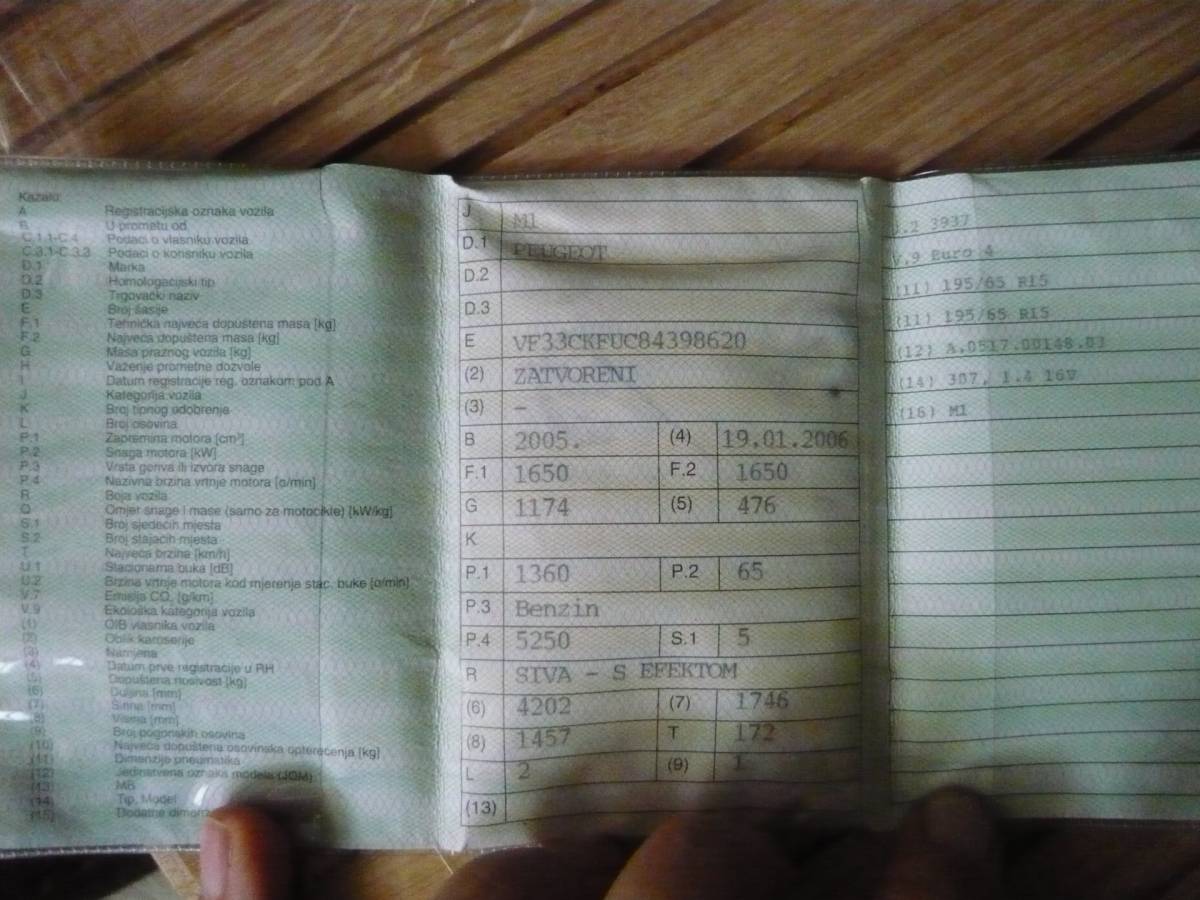 Kazalo:
A Registracijska oznaka vozila
B U prometu od
C.1.1-C.4 Podaci o vlasniku vozila
C.3.1-C.3.3 Podaci o korisniku vozila
D.1 Marka
D.2 Homologacijski tip
D.3 Trgovački naziv
E Broj šasije
F.1 Tehnička najveća dopuštena masa [kg]
F.2 Najveća dopuštena masa [kg]
G Masa praznog vozila [kg]
H Važenje prometne dozvole
I Datum registracije reg. oznakom pod A
J Kategorija vozila
K Broj tipnog odobrenje
L Broj osovina
P.1 Zapremina motora [cm³]
P.2 Snaga motora [kW]
P.3 Vrsta goriva ili izvora snage
P.4 Nazivna brzina vrtnje motora [o/min]
R Boja vozila
Q Omjer snage i mase (samo za motocikle) [kW/kg]
S.1 Broj sjedećih mjesta
S.2 Broj stajaćih mjesta
T Najveća brzina [km/h]
U.1 Stacionarna buka [dB]
U.2 Brzina vrtnje motora kod mjerenja stac. buke [o/min]
V.7 Emisija CO₂ [g/km]
V.9 Ekološka kategorija vozila
(1) OIB vlasnika vozila
(2) Oblik karoserije
(3) Namjena
(4) Datum prve registracije u RH
(5) Dopuštena nosivost [kg]
(6) Duljina [mm]
(7) Širina [mm]
(8) Visina [mm]
(9) Broj pogonskih osovina
(10) Najveća dopuštena osovinska opterećenja [kg]
(11) Dimenzije pneumatika
(12) Jedinstvena oznaka modela (JOM)
(13) MB
(14) Tip, Model
(15) Dodatne
J M1
D.1 PEUGEOT
D.2
D.3
E VF33CKFUC84398620
(2) ZATVORENI
(3) -
B 2005. (4) 19.01.2006
F.1 1650 F.2 1650
G 1174 (5) 476
K
P.1 1360 P.2 65
P.3 Benzin
P.4 5250 S.1 5
R SIVA - S EFEKTOM
(6) 4202 (7) 1746
(8) 1457 T 172
L 2 (9) 1
(13)
.2 3937
V.9 Euro 4
(11) 195/65 R15
(11) 195/65 R15
(12) A.0517.00148.03
(14) 307, 1.4 16V
(16) M1